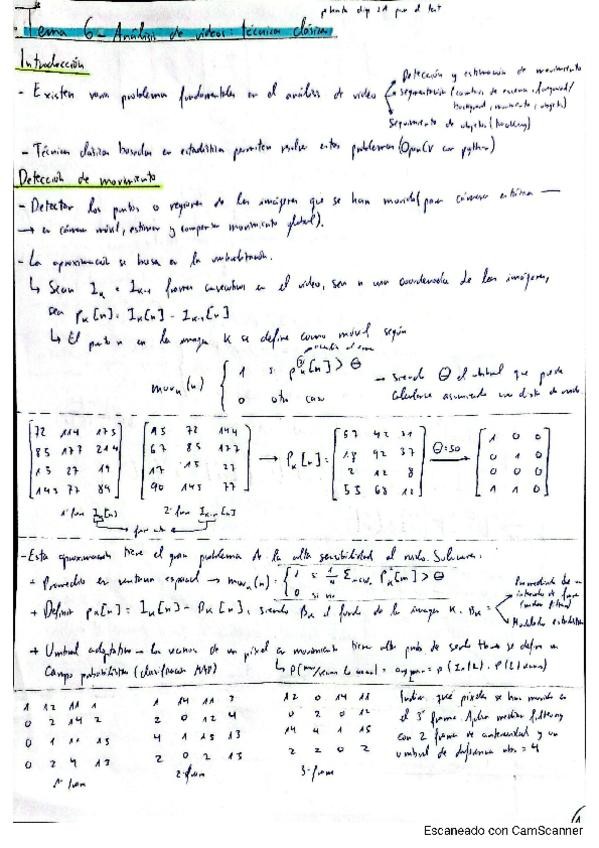 Tema 6 - Análisis de videos: técnicas clásicas
Introducción
- Existen varios problemas fundamentales en el análisis de video
Detección y estimación de movimiento
Seguimiento de objetos (tracking)
- Técnicas clásicas basadas en estadística permiten resolver estos problemas (OpenCV con python)
Detección de movimiento
- Detectar los puntos o regiones de las imágenes que se han movido (para cámaras estáticas
→ en cámara móvil, estimar y compensar movimiento global).
- La aproximación se basa en la umbralización.
↳ Sean Iₖ e Iₖ₋₁ frames consecutivos en el video, sea n una coordenada de las imágenes,
sea pₖ[n] = Iₖ[n] - Iₖ₋₁[n]
↳ El punto n en la imagen K se define como móvil según
movₖ(n) { 1 si pₖ²[n] > Θ
0 otro caso
→ siendo Θ el umbral que puede
calcularse asumiendo una dist. de ruido
72 114 175
85 177 214
15 27 19
145 77 89
15 72 144
67 85 177
17 15 27
90 145 77
→ Pₖ[n] =
57 42 31
18 92 37
2 12 8
55 68 12
Θ=50
1 0 0
0 1 0
0 0 0
1 1 0
1º frame Iₖ[n]
2º frame Iₖ₋₁[n]
- Esta aproximación tiene el gran problema de la alta sensibilidad al ruido. Soluciones:
+ Promediado en ventana espacial → movₖ(n) = { 1 si
0 si no
+ Definir pₖ[n] = Iₖ[n] - Bₖ[n], siendo Bₖ el fondo de la imagen K. Bₖ =
Modelado estadístico
+ Umbral adaptativo - los vecinos de un pixel en movimiento tiene alta prob. de serlo
campo probabilístico (clasificador MAP)
1 12 11 1
0 2 14 2
0 1 11 15
0 2 4 13
1º frame
1 14 11 2
2 0 12 4
4 1 15 13
2 0 2 13
2º frame
12 0 14 11
0 2 0 12
14 4 1 15
2 2 0 2
3º frame
Indicar qué pixeles se han movido en
el 3º frame. Aplicar median filtering
con 2 frames de anterioridad y un
umbral de diferencia abs = 4
Escaneado con CamScanner